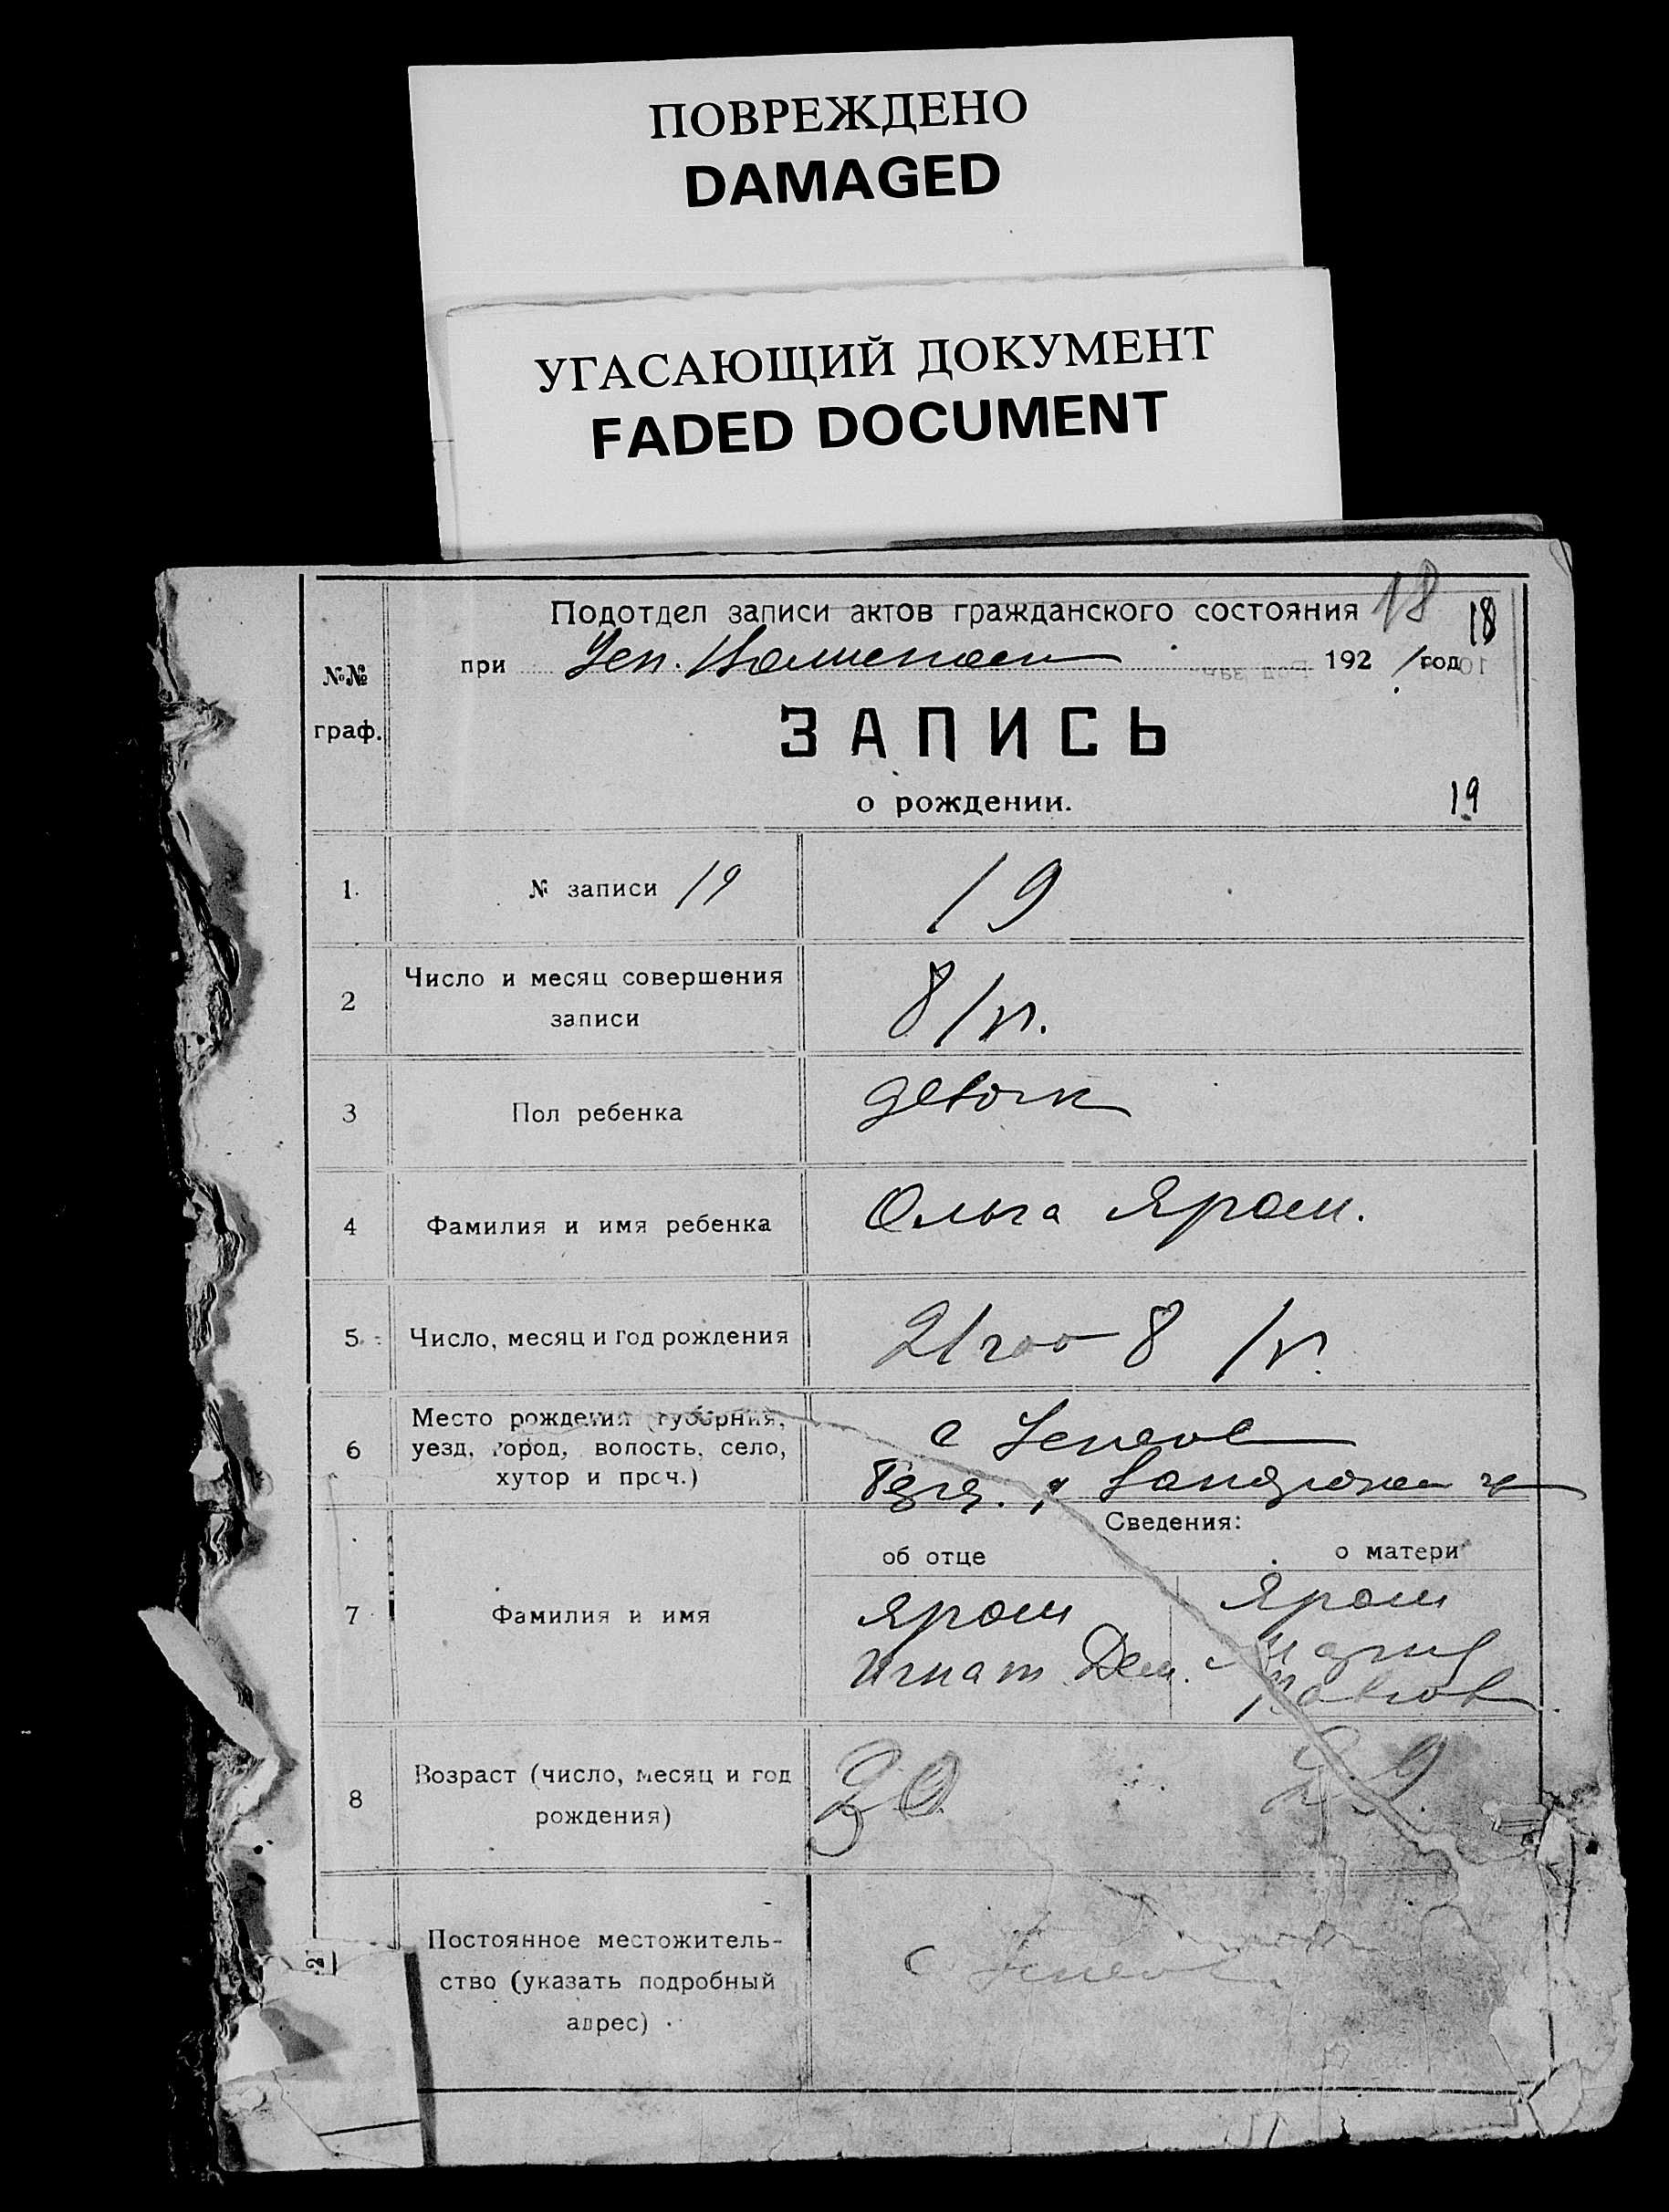 ПОВРЕЖДЕНО
DAMAGED
УГАСАЮЩИЙ ДОКУМЕНТ
FADED DOCUMENT
Подотдел записи актов гражданского состояния 18 18
№№ при 192 1 год
граф.
ЗАПИСЬ
о рождении. 19
1. № записи 19 19
2 Число и месяц совершения
записи 8/VI.
3 Пол ребенка девочк
4 Фамилия и имя ребенка Ольга Ярош.
5 Число, месяц и год рождения 21 год 8 /VI.
6 Место рождения (губерния,
уезд, город, волость, село,
хутор и проч.) с
Сведения:
об отце о матери
7 Фамилия и имя Ярош Ярош
Игнат Дем. Мария
Павлов
8 Возраст (число, месяц и год
рождения) 30 29.
Постоянное местожитель-
ство (указать подробный
адрес) с